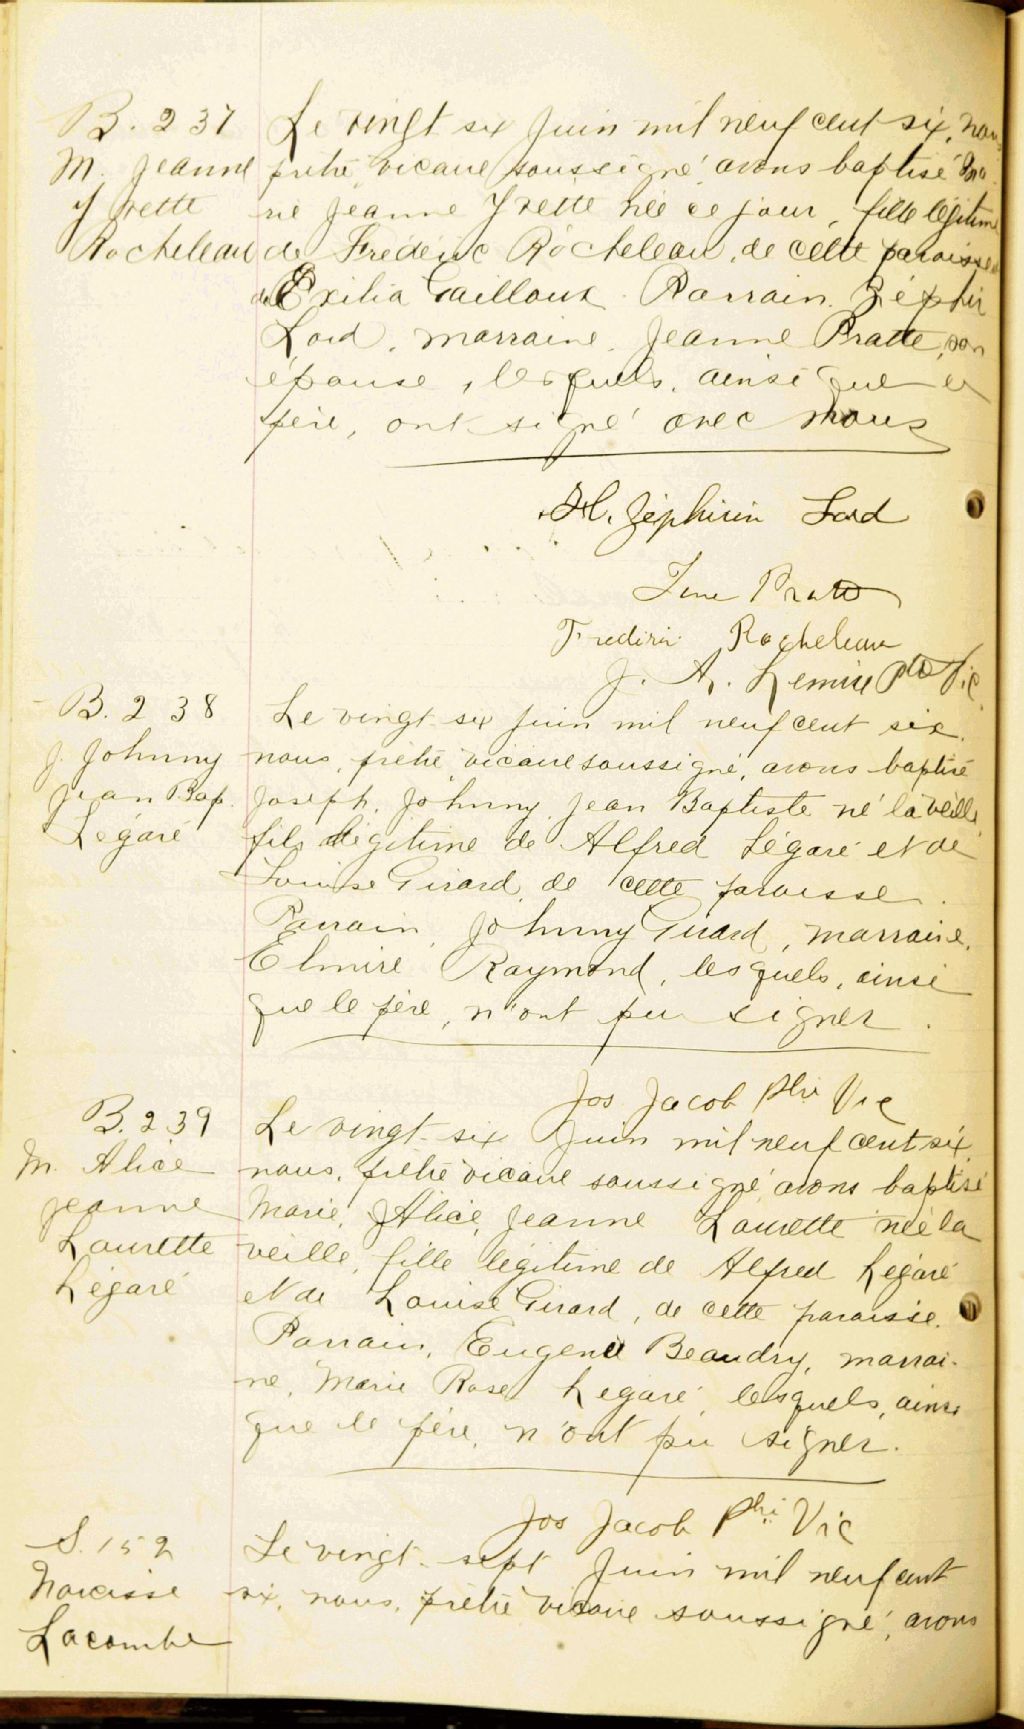 B. 237
M. Jeanne
Yvette
Rocheleau
Le vingt six Juin mil neuf cent six, nous
prêtre vicaire soussigné avons baptisé Ma
rie Jeanne Yvette née ce jour, fille légitime
de Frédéric Rocheleau, de cette paroisse et
de Exilia Gailloux. Parrain. Zéphir
Lord, marraine, Jeanne Pratte, son
épouse, lesquels, ainsi que le
père, ont signé avec nous
H. Zéphirin Lord
Pratte
Frederic Rocheleau
J. A. Lemire Ptre Vic
B. 238
J. Johnny
Jean Bap.
Légaré
Le vingt-six Juin mil neuf cent six.
nous, prêtre vicaire soussigné, avons baptisé
Joseph, Johnny, Jean Baptiste né la veille,
fils légitime de Alfred Légaré et de
Louise Girard, de cette paroisse.
Parrain, Johnny Girard, marraine,
Elmire Raymond, lesquels, ainsi
que le père, n'ont pu signer.
Jos Jacob Ptre Vic
B. 239
M. Alice
Jeanne
Laurette
Légaré
Le vingt-six Juin mil neuf cent six,
nous, prêtre vicaire soussigné avons baptisé
Marie, Alice, Jeanne Laurette née la
veille, fille légitime de Alfred Légaré
et de Louise Girard, de cette paroisse.
Parrain, Eugène Beaudry, marrai-
ne, Marie Rose Legaré, lesquels, ainsi
que le père, n'ont pu signer.
Jos Jacob Ptre Vic
S. 152
Narcisse
Lacombe
Le vingt-sept Juin mil neuf cent
six, nous, prêtre vicaire soussigné, avons